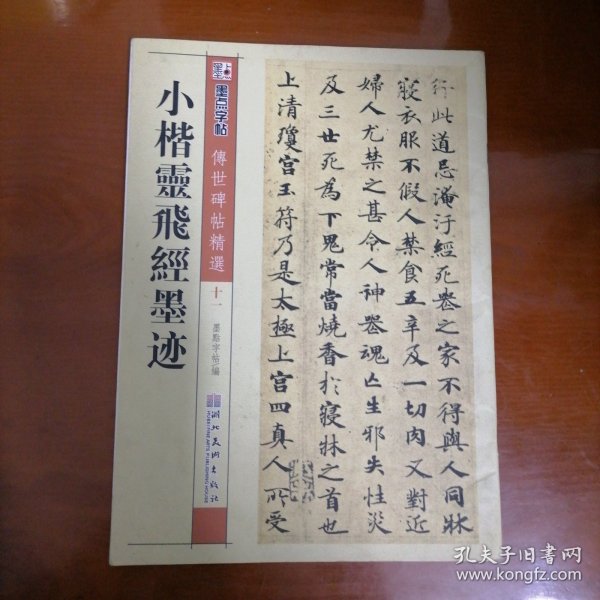 小楷靈飛經墨迹
墨点字帖
傳世碑帖精選
十一
墨點字帖 編
湖北美术出版社
HUBEI FINE ARTS PUBLISHING HOUSE
行此道忌淹汙經死喪之家不得與人同牀
寢衣服不假人禁食五辛及一切肉又對近
婦人尤禁之甚令人神喪魂亡生邪失性災
及三世死為下鬼常當燒香於寢牀之首也
上清瓊宮玉符乃是太極上宮四真人所受
孔夫子旧书网
www.kongfz.com